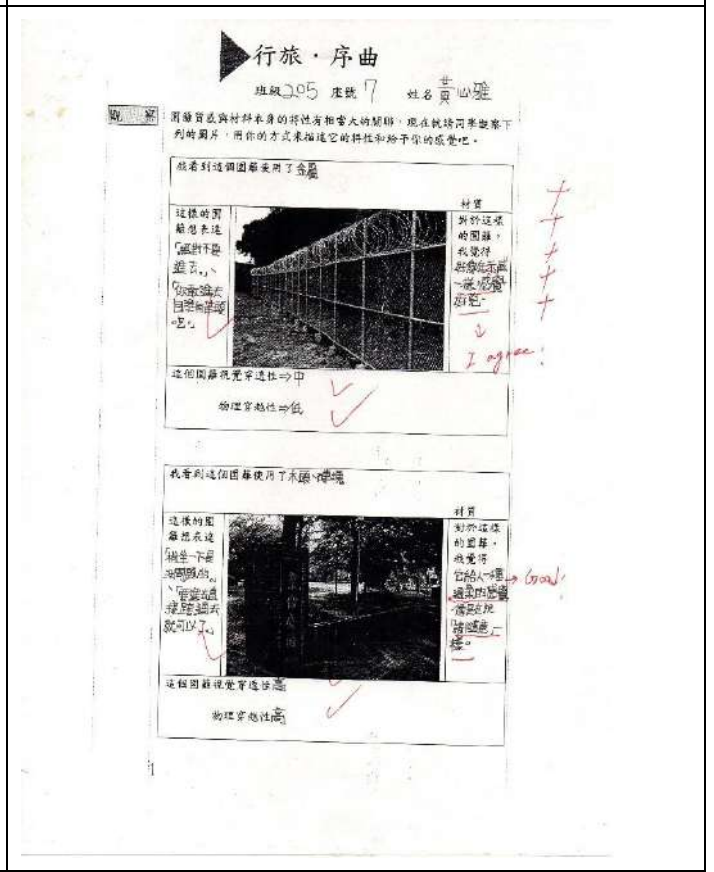 行旅・序曲
班級205 座號7 姓名黃心雅
觀 察
圍籬質感與材料本身的特性有相當大的關聯，現在就請同學觀察下
列的圖片，用你的方式來描述它的特性和給予你的感覺吧。
我看到這個圍籬使用了金屬
材質
這樣的圍
籬想表達
「絕對不要
進去。」、
「你敢進去
吧。」
對於這樣
的圍籬，
我覺得
I agree!
這個圍籬視覺穿透性⇒中
物理穿越性⇒低
我看到這個圍籬使用了木頭、磚塊
材質
這樣的圍
籬想表達
就可以了。」
對於這樣
的圍籬，
我覺得
它給人一種
溫柔的感覺
「請隨意」一
樣。
Good!
這個圍籬視覺穿透性高
物理穿越性高
1